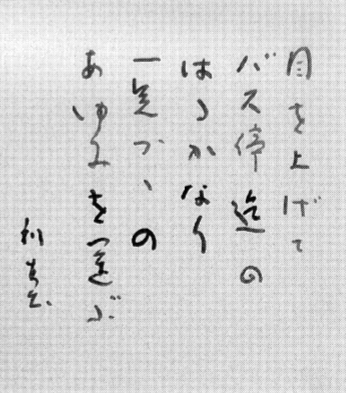 目を上げて
バス停迄の
はるかなり
一足づゝの
あゆみを運ぶ